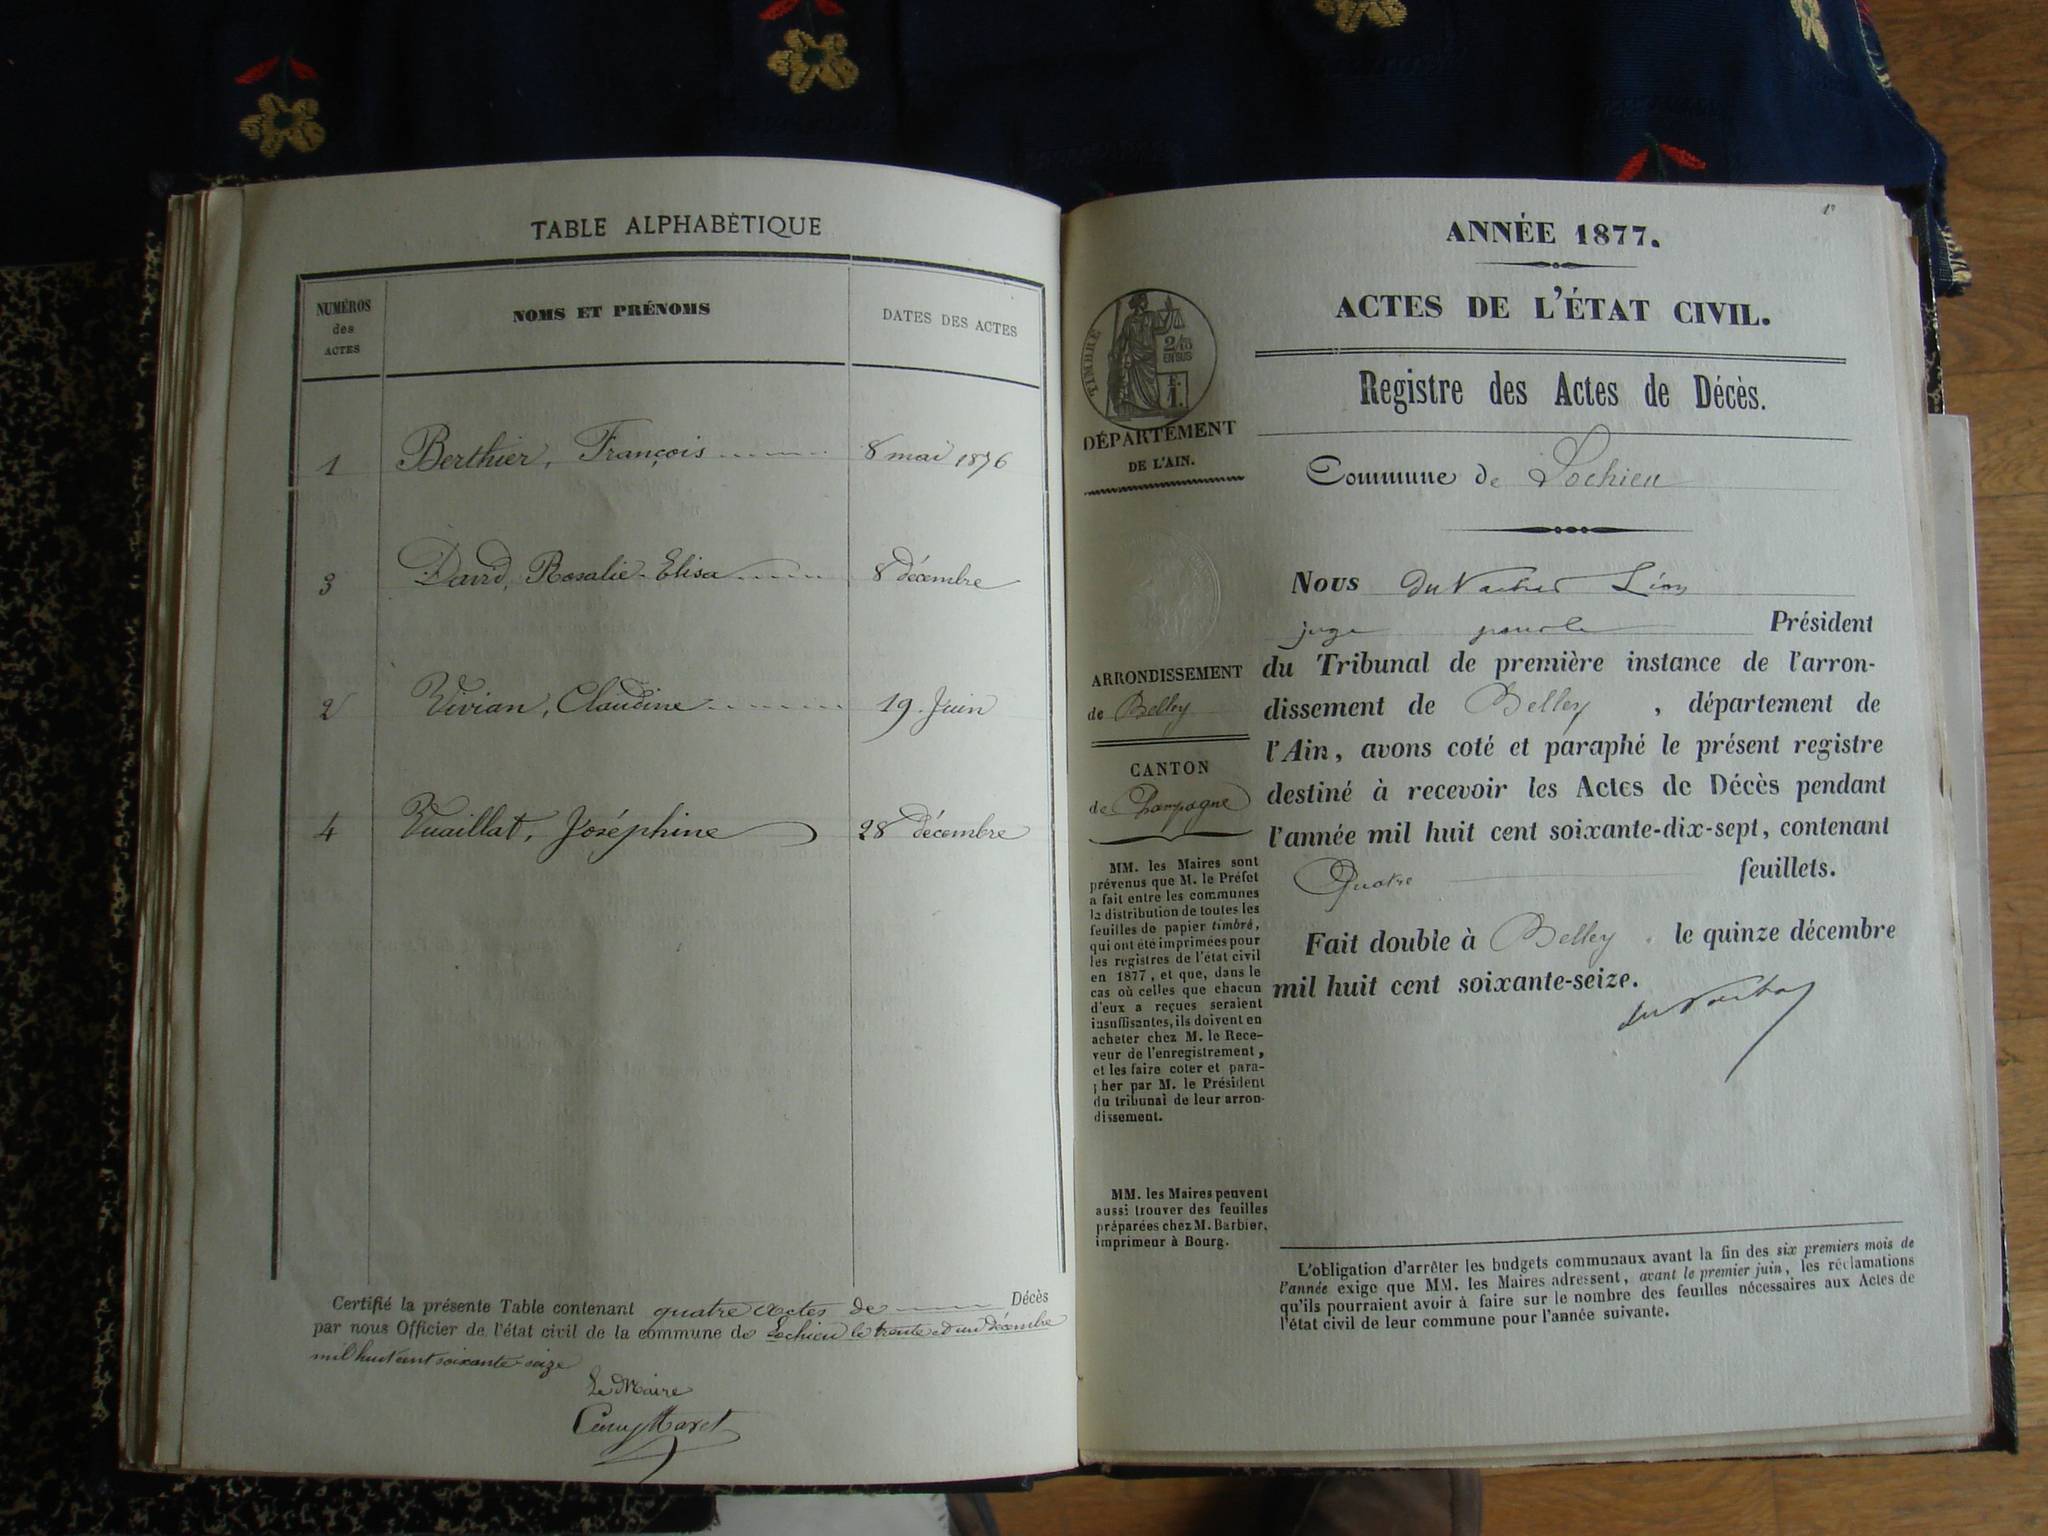 TABLE ALPHABÉTIQUE
NUMÉROS
des
ACTES
NOMS ET PRÉNOMS
DATES DES ACTES
1 Berthier, François 8 mai 1876
3 David, Rosalie-Elisa 8 décembre
2 Vivian, Claudine 19 Juin
4 Vuaillat, Joséphine 28 décembre
Certifié la présente Table contenant quatre Actes de Décès
par nous Officier de l'état civil de la commune de Lochieu le trente et un décembre
mil huit cent soixante-seize
Le Maire
1er
ANNÉE 1877.
ACTES DE L'ÉTAT CIVIL.
Registre des Actes de Décès.
TIMBRE
2/10
EN SUS
1 F.
DÉPARTEMENT
DE L'AIN.
Commune de Lochieu
Nous Léon
juge pour le Président
du Tribunal de première instance de l'arron-
dissement de Belley, département de
l'Ain, avons coté et paraphé le présent registre
destiné à recevoir les Actes de Décès pendant
l'année mil huit cent soixante-dix-sept, contenant
Quatre feuillets.
Fait double à Belley, le quinze décembre
mil huit cent soixante-seize.
ARRONDISSEMENT
de Belley
CANTON
de Champagne
MM. les Maires sont
prévenus que M. le Préfet
a fait entre les communes
la distribution de toutes les
feuilles de papier timbré,
qui ont été imprimées pour
les registres de l'état civil
en 1877, et que, dans le
cas où celles que chacun
d'eux a reçues seraient
insuffisantes, ils doivent en
acheter chez M. le Rece-
veur de l'enregistrement,
et les faire coter et para-
pher par M. le Président
du tribunal de leur arron-
dissement.
MM. les Maires peuvent
aussi trouver des feuilles
préparées chez M. Barbier,
imprimeur à Bourg.
L'obligation d'arrêter les budgets communaux avant la fin des six premiers mois de
l'année exige que MM. les Maires adressent, avant le premier juin, les réclamations
qu'ils pourraient avoir à faire sur le nombre des feuilles nécessaires aux Actes de
l'état civil de leur commune pour l'année suivante.